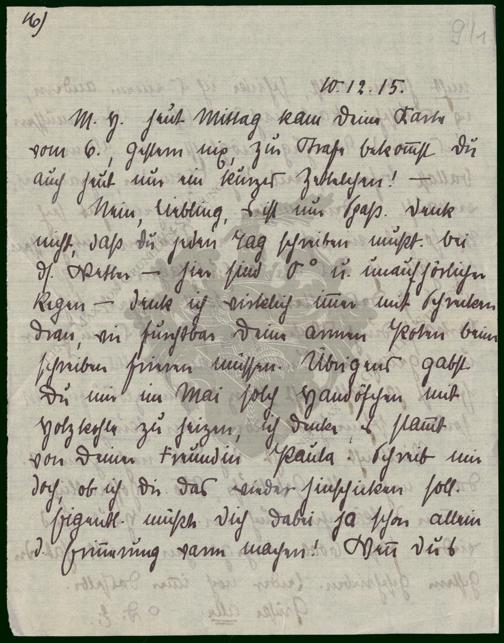 16)
94
10.12.15.
M. H. heut Mittag kam Deine Karte
vom 6., gestern nix, zur Strafe bekommst Du
auch heut nur ein kurzes Zettelchen! —
Nein, Liebling, 's ist nur Spaß. Denk
nicht, daß du jeden Tag schreiben mußt. bei
d. Wetter — hier sind 5° u. unaufhörlicher
Regen — denk ich wirklich immer mit Schrecken
dran, wie furchtbar Deine armen Pfoten beim
schreiben frieren müssen. Übrigens gabst
Du mir im Mai solch Handöfchen mit
Holzkohle zu heizen, ich denke, es stammt
von Deiner Freundin Paula. Schreib mir
doch, ob ich dir das wieder hinschicken soll.
Eigentl. müßte Dich dabei ja schon allein
d. Erinnerung warm machen! Wenn Du's